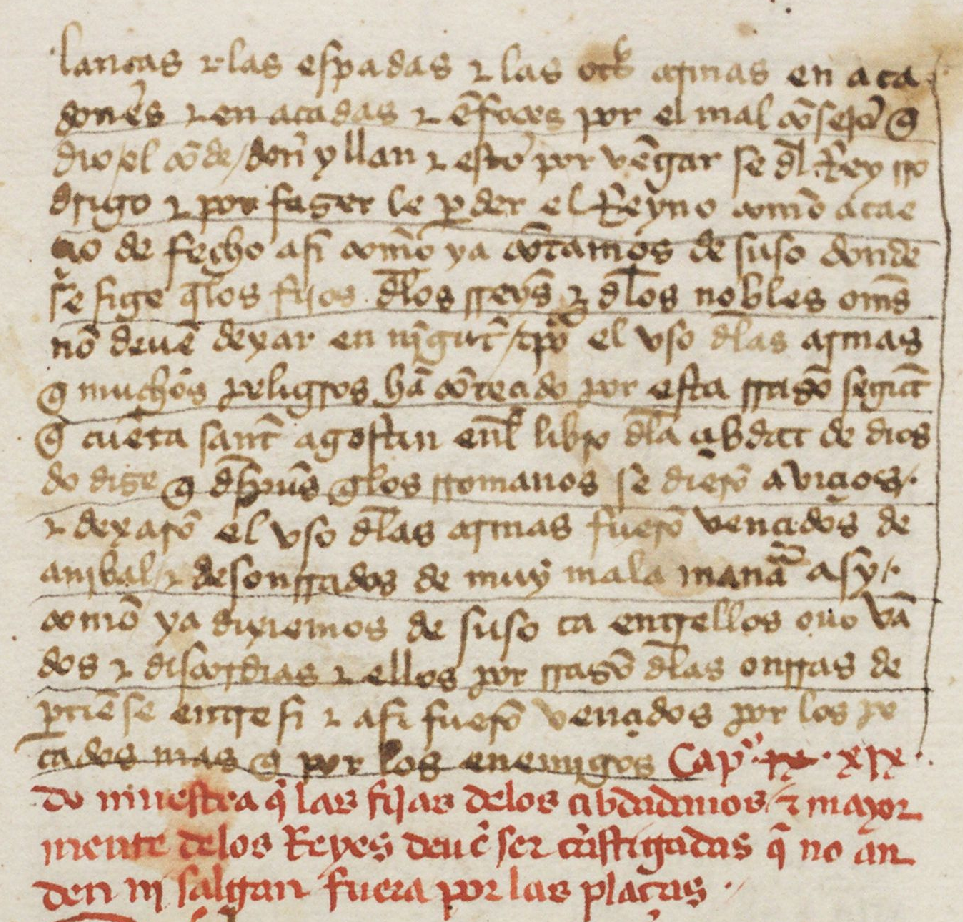 lanças τ las espadas τ las otrˢ armas en aça
dones τ en açadas τ ẽ foçes por el mal cõsejo q̃
dio el cõde don yllan τ esto por vẽgar se dl Rey rro
drigo τ por fazer le ꝑder el Reyno commo acae
çio de fecho asi commo ya cõtamos de suso donde
se sige q̃ los fijos dlos rreys τ dlos nobles oms
nõ deuẽ dexar en nĩgunt tpõ el vso dlas armas
q̃ muchos peligros hã cõteçido por esta rrazõ segunt
q̃ cuẽta sant agostin enl libro dla çibdat de dios
do dize q̃ despues q̃ los rromanos se dierõ a viçios
τ dexarõ el vso dlas armas fuerõ vençidos de
anibal τ desonrrados de muy mala manã asy
commo ya dixiemos de suso ca entrellos ouo vã
dos τ discordias τ ellos por rrazõ dlas onrras de
ꝑtiẽse entresi τ asi fuerõ vençidos por los pe
cados mas q̃ por los enemigos Capᵒ xix
do muestra q̃ las fijas delos çibdadanos τ mayor
mente delos Reyes deuẽ ser castigadas q̃ no an
den ni salgan fuera por las plaças